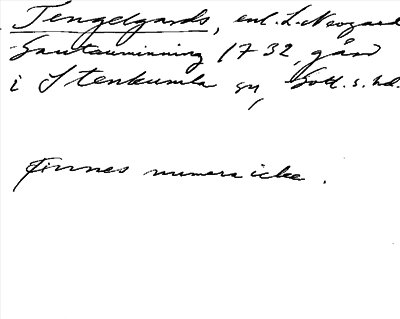 Tengelgards, enl. L. Neogard
Sautauminning 1732, gård
i Stenkumla sn, Gotl. s. hd.
Finnes numera icke.